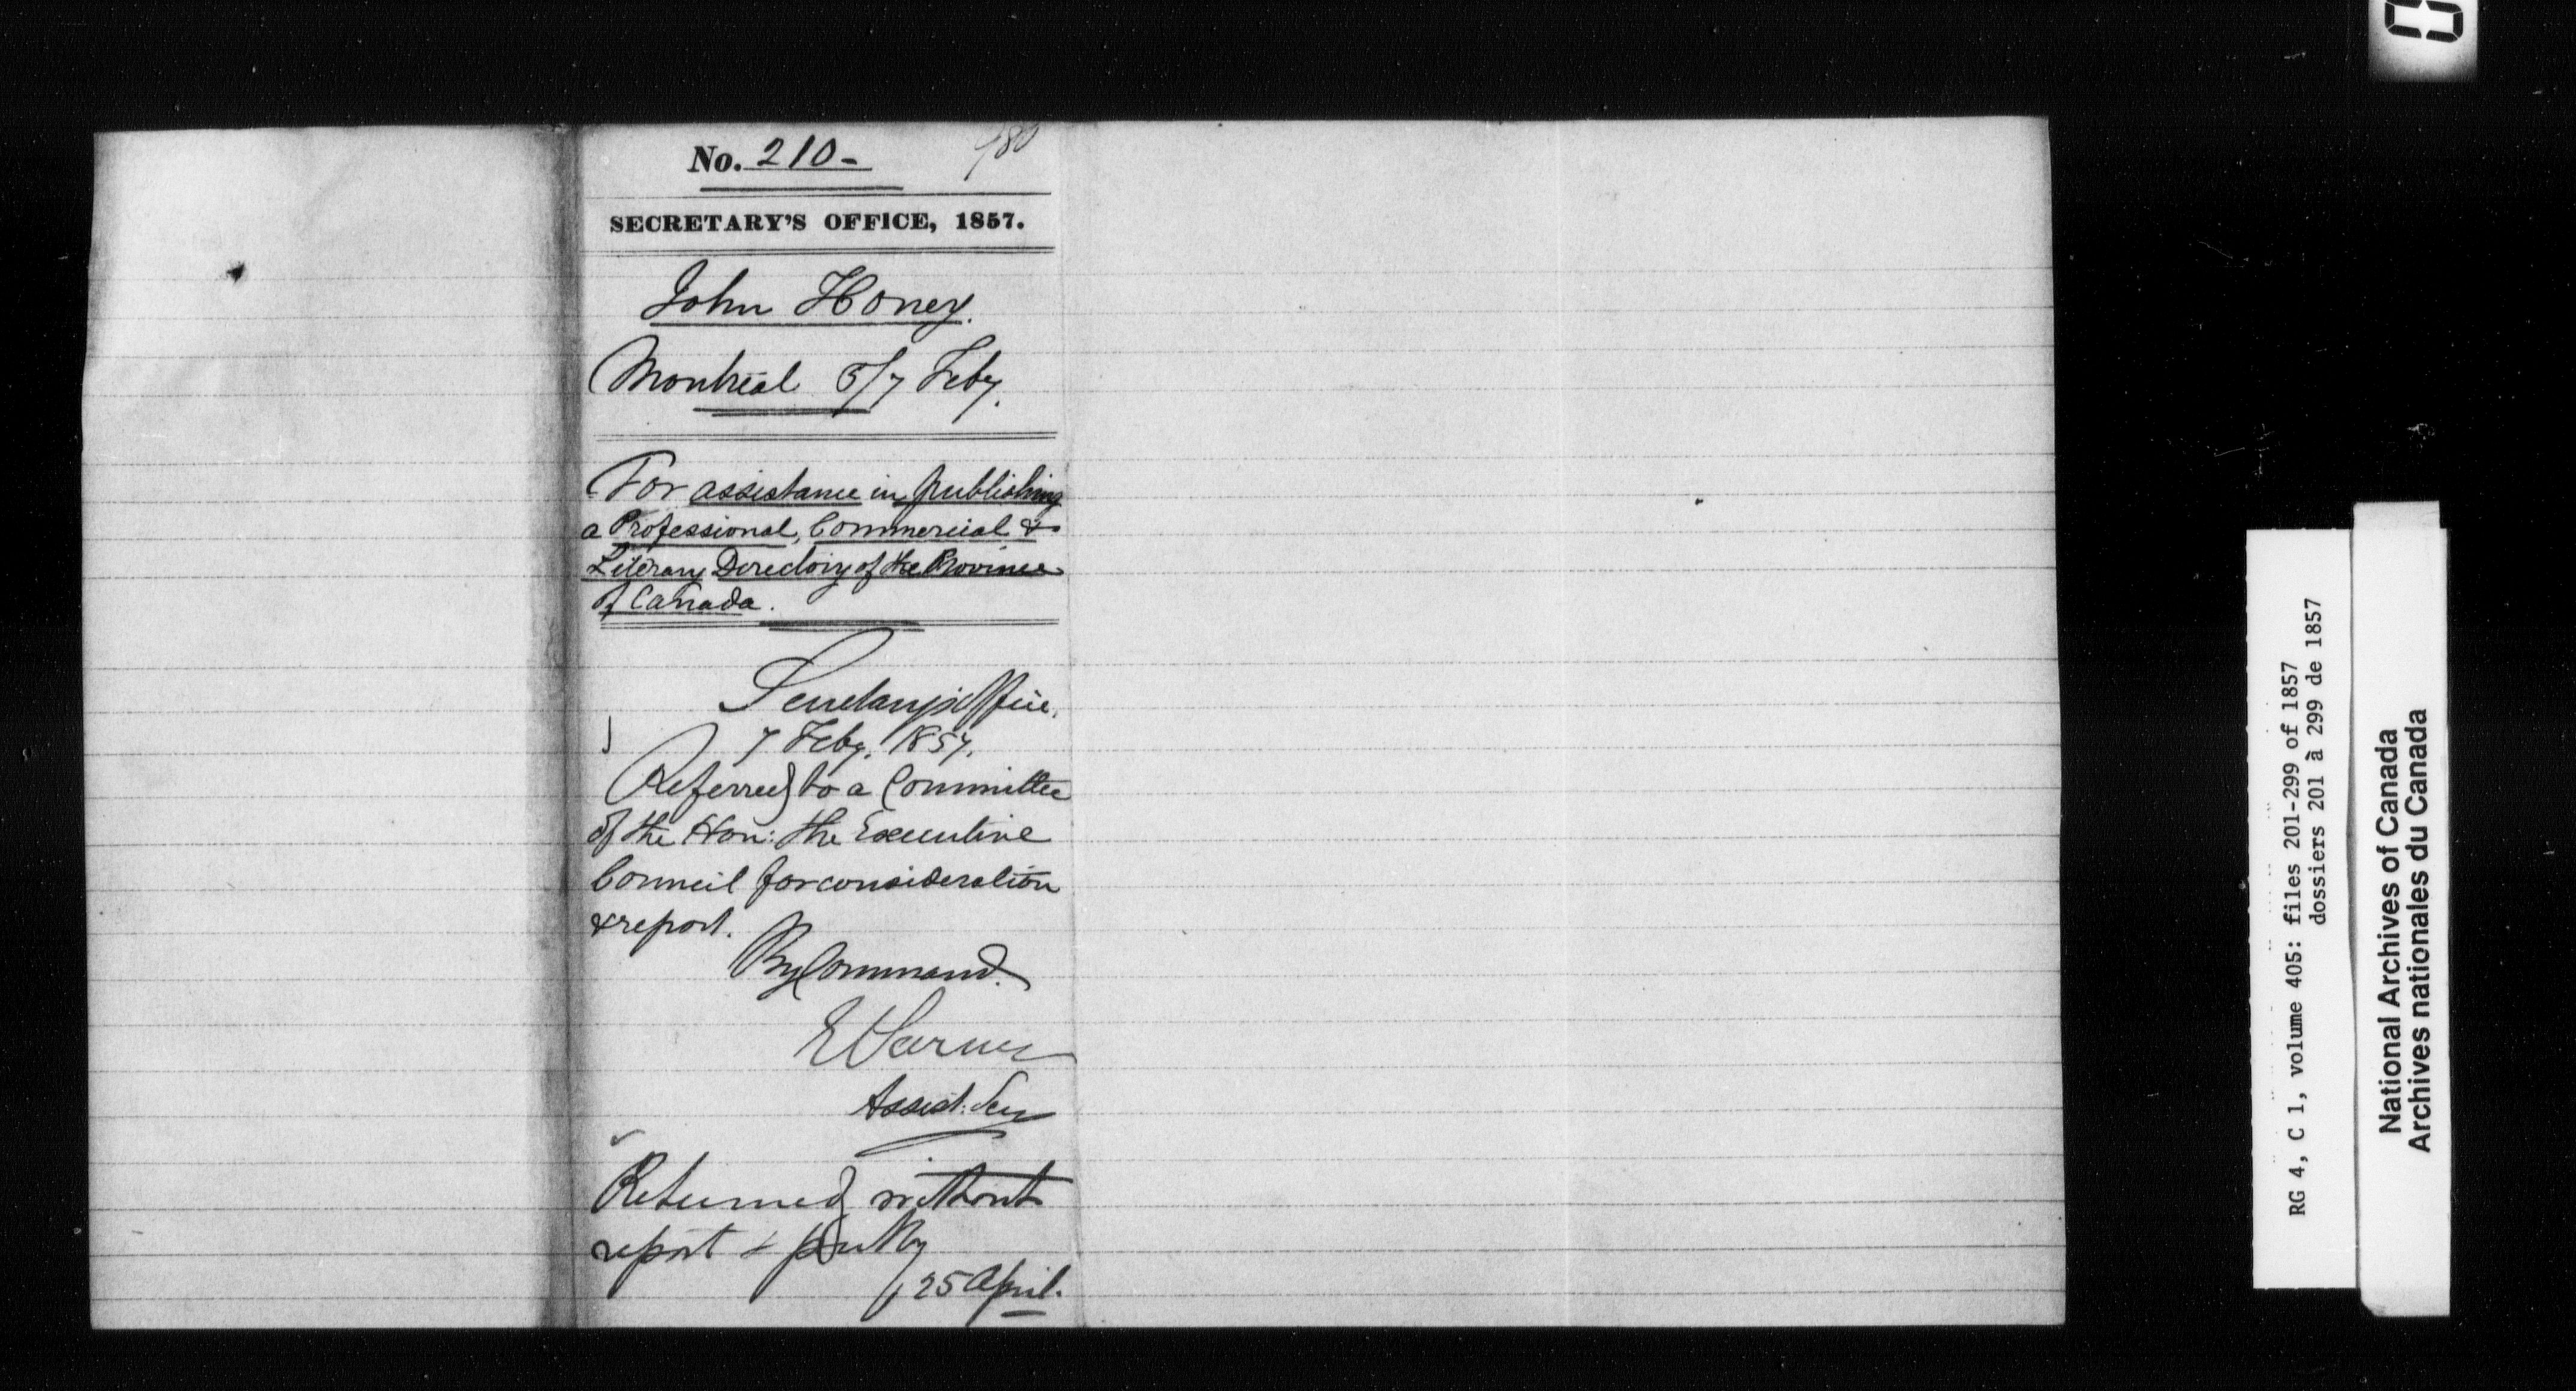 No. 210-
180
SECRETARY'S OFFICE, 1857.
John Honey.
Montreal 5/7 Feby.
For assistance in publishing
a Professional, Commercial &
Literary Directory of the Province
of Canada.
Secretary's Office,
7 Feby. 1857.
Referred to a Committee
of the Hon: the Executive
Council for consideration
& report.
By Command.
Assist: Secy
Returned without
report & put by
25 April.
RG 4, C 1, volume 405: files 201-299 of 1857
dossiers 201 à 299 de 1857
National Archives of Canada
Archives nationales du Canada